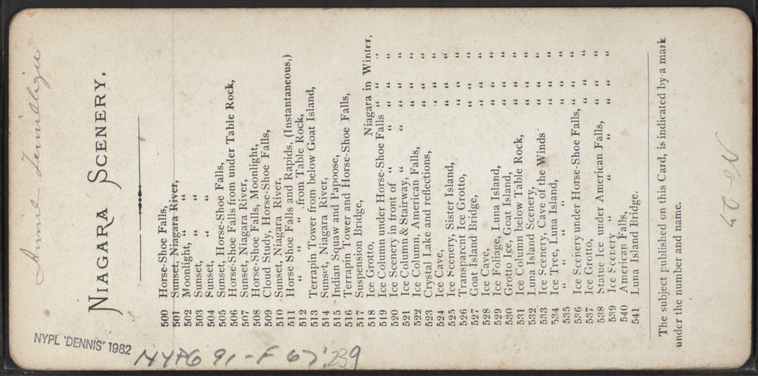 Annie
NIAGARA SCENERY.
500 Horse-Shoe Falls,
501 Sunset, Niagara River,
502 Moonlight, " "
503 Sunset, " "
504 Sunset, " "
505 Sunset, Horse-Shoe Falls,
506 Horse-Shoe Falls from under Table Rock,
507 Sunset, Niagara River,
508 Horse-Shoe Falls, Moonlight,
509 Cloud Study, Horse-Shoe Falls,
510 Sunset, Niagara River.
511 Horse Shoe Falls and Rapids, (Instantaneous,)
512 " " " from Table Rock,
513 Terrapin Tower from below Goat Island,
514 Sunset, Niagara River,
515 Indian Squaw and Papoose,
516 Terrapin Tower and Horse-Shoe Falls,
517 Suspension Bridge,
518 Ice Grotto, Niagara in Winter.
519 Ice Column under Horse-Shoe Falls " " "
520 Ice Scenery in front of " " " "
521 Ice Column & Stairway, " " " "
522 Ice Column, American Falls, " " "
523 Crystal Lake and reflections, " " "
524 Ice Cave, " " "
525 Ice Scenery, Sister Island, " " "
526 Transparent Ice Grotto, " " "
527 Goat Island Bridge, " " "
528 Ice Cave, " " "
529 Ice Foliage, Luna Island, " " "
530 Grotto Ice, Goat Island, " " "
531 Ice Column below Table Rock, " " "
532 Luna Island Scenery, " " "
533 Ice Scenery, Cave of the Winds " " "
534 Ice Tree, Luna Island, " " "
535 " " " " " " "
536 Ice Scenery under Horse-Shoe Falls, " " "
537 Ice Grotto, " " "
538 Statue Ice under American Falls, " " "
539 Ice Scenery " " " " " "
540 American Falls,
541 Luna Island Bridge.
The subject published on this Card, is indicated by a mark
under the number and name.
NYPL 'DENNIS' 1982
NYPG 91-F67.239